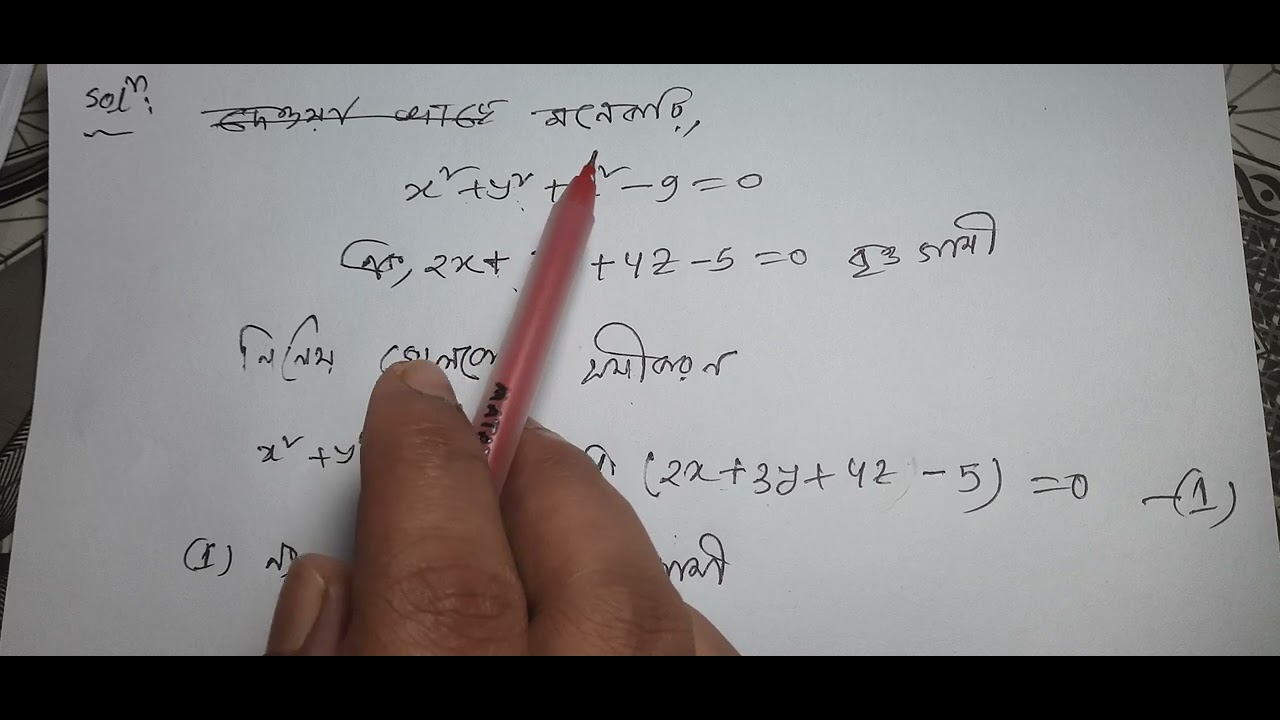 Solⁿ:
মনেকরি,
x² + y² + ² - 9 = 0
2x + + 4z - 5 = 0 বৃত্ত গামী
নির্নেয় সমীকরন
x² + y (2x + 3y + 4z - 5) = 0 —(1)
(1) গামী